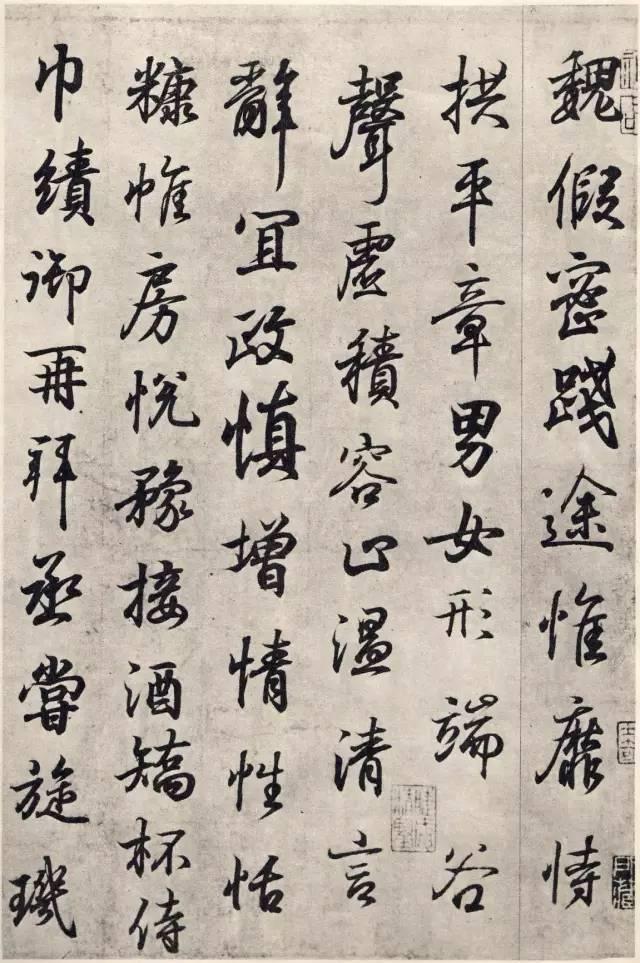 魏假密踐途惟靡恃
拱平章男女形端谷
聲虛積容止溫清言
辭宜政慎增情性恬
糠帷房悅豫接酒矯杯侍
巾績御再拜丞嘗旋璣